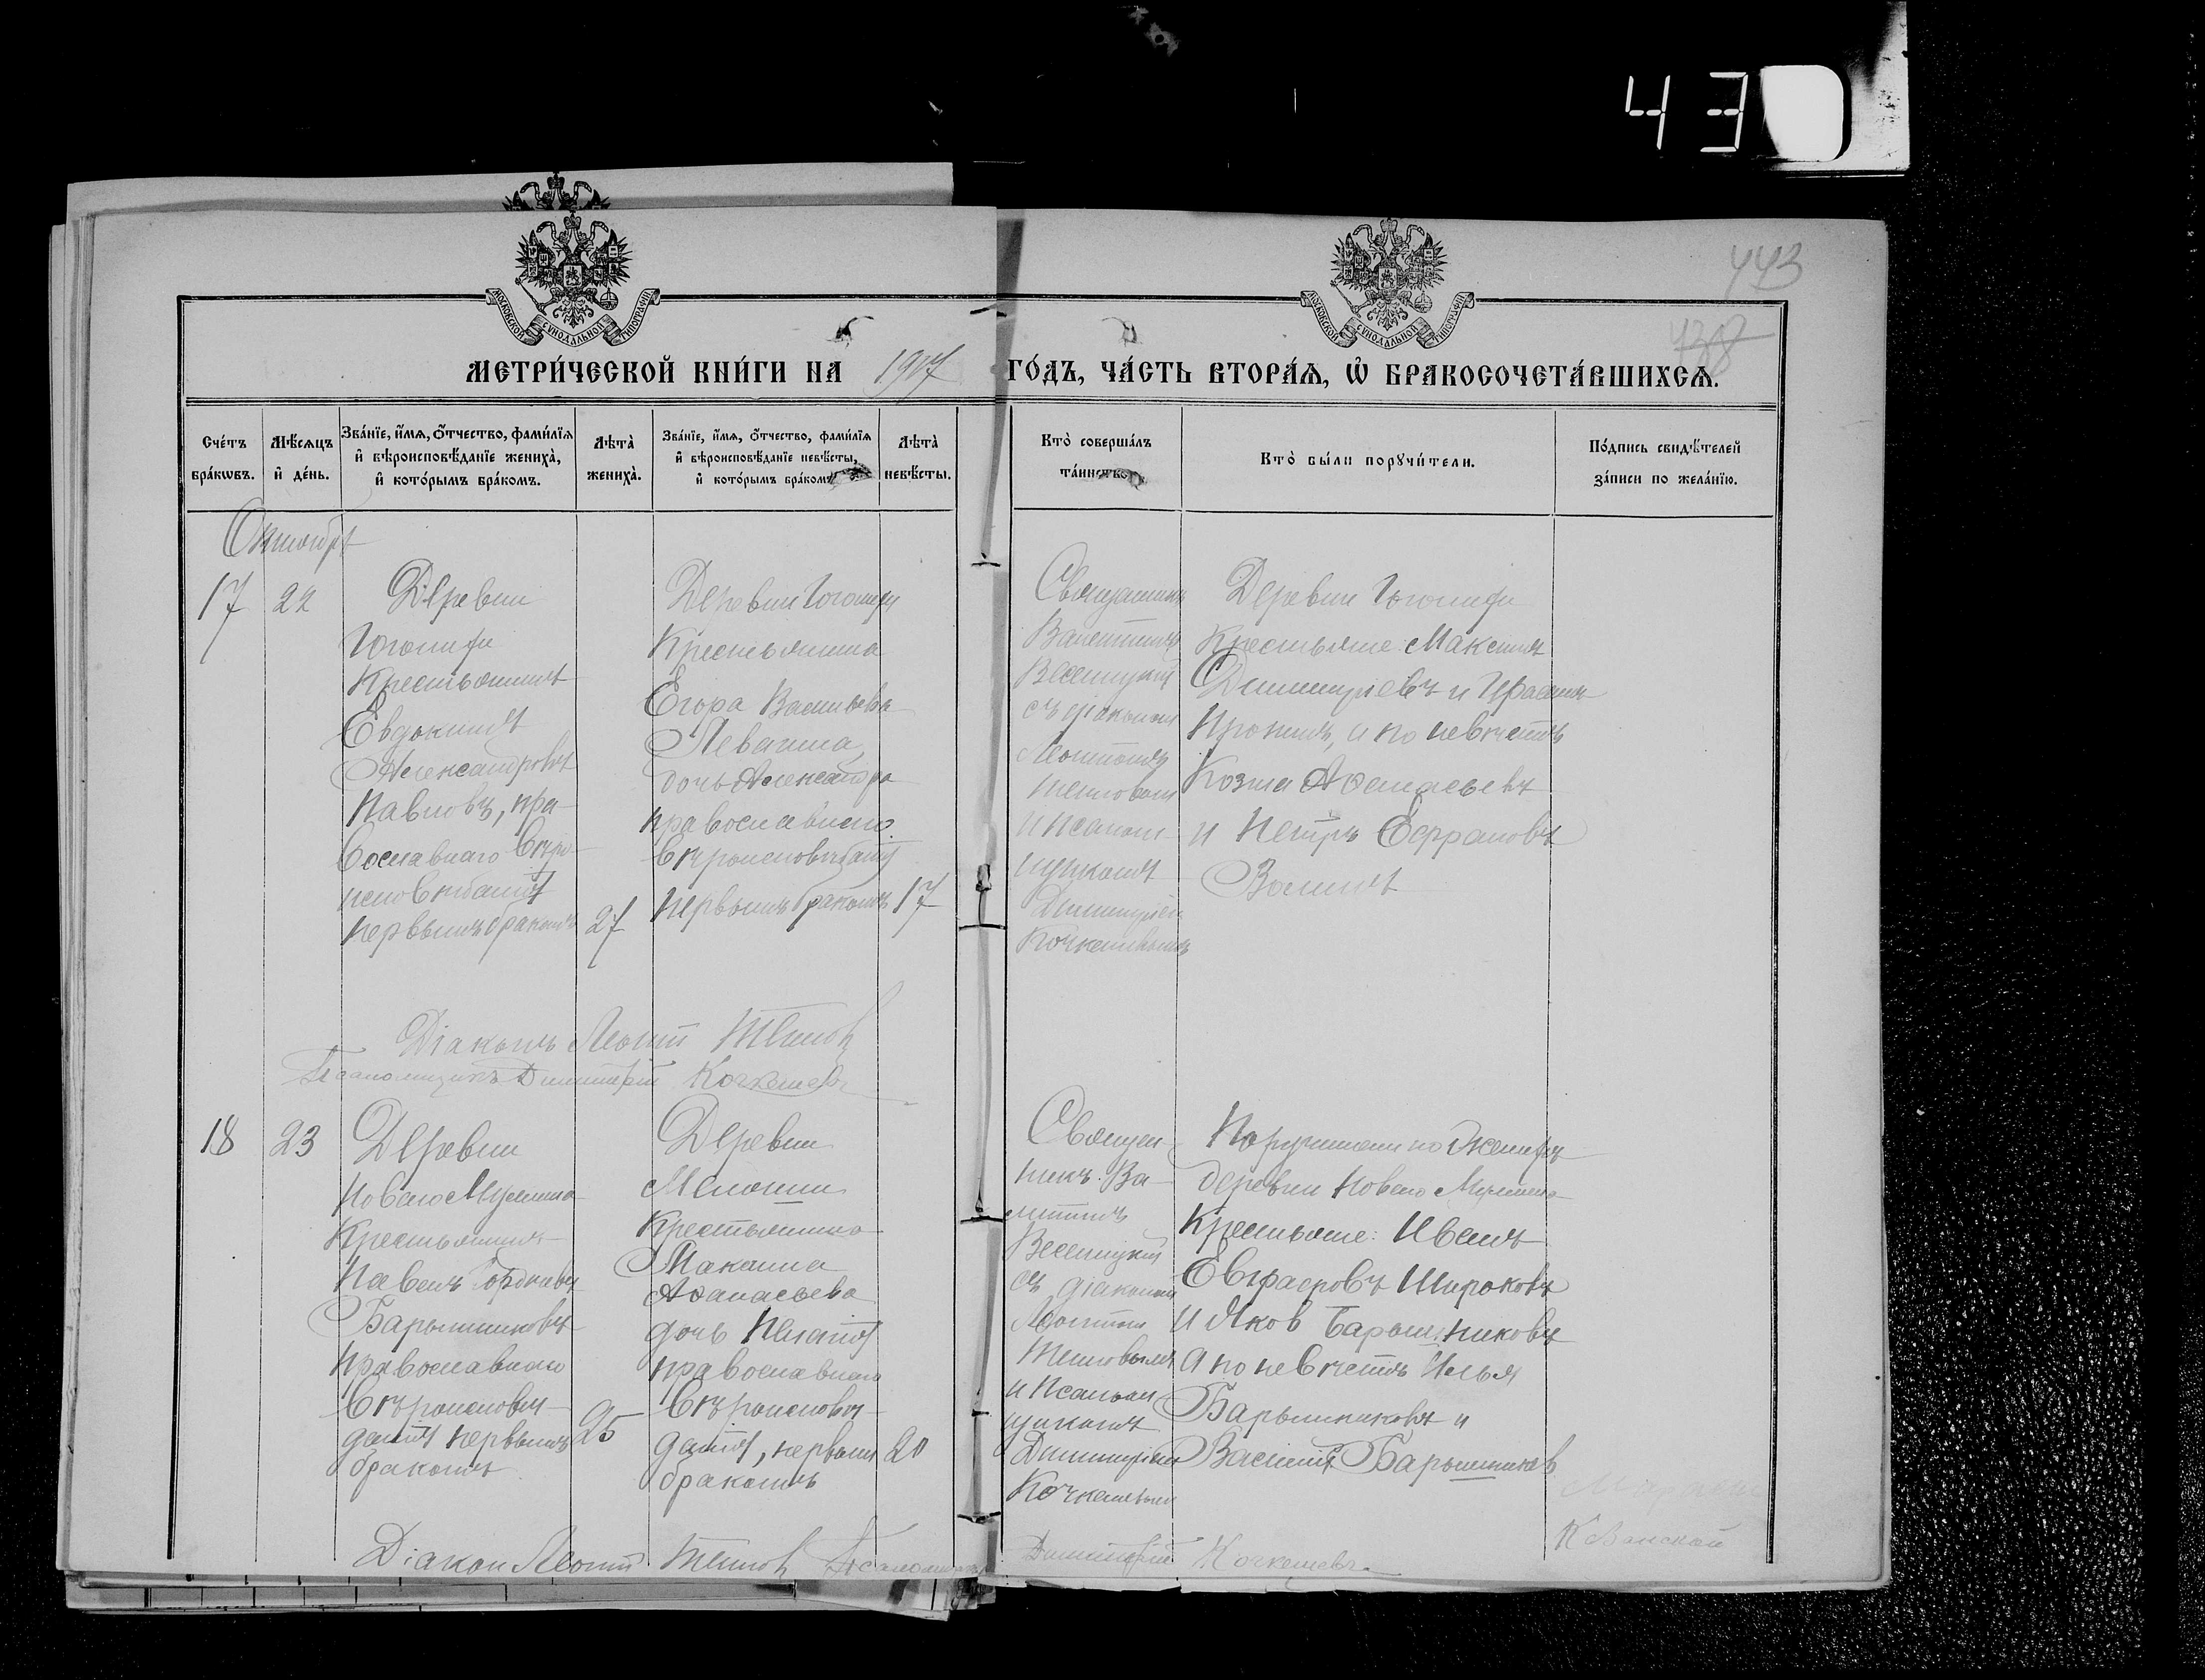 430
443
738
МОСКОВСКОЙ СѴНОДАЛЬНОЙ ТИПОГРАФІИ
МОСКОВСКОЙ СѴНОДАЛЬНОЙ ТИПОГРАФІИ
МЕТРИ́ЧЕСКОЙ КНИ́ГИ НА 1917 ГО́ДЪ, ЧА́СТЬ ВТОРА́Ѧ, Ѡ҆ БРАКОСОЧЕТА́ВШИХСѦ.
Сче́тъ бра́кѡвъ.
Мѣ́сѧцъ и҆ де́нь.
Зва́нїе, и҆́мѧ, ѻ҆́тчество, фами́лїѧ
и҆ вѣроисповѣ́данїе жениха̀,
и҆ кото́рымъ бра́комъ.
Лѣта̀ жениха̀.
Зва́нїе, и҆́мѧ, ѻ҆́тчество, фами́лїѧ
и҆ вѣроисповѣ́данїе невѣ́сты,
и҆ кото́рымъ бра́комъ
Лѣта̀ невѣ́сты.
Кто̀ соверша́лъ
та́инство.
Кто̀ бы́ли порꙋчи́тели.
По́дпись свидѣ́телей
за́писи по жела́нїю.
Октябрь
17
22
Деревни
Крестьянинъ
Евдокимъ
Александровъ
Павловъ, пра-
вославнаго вѣро-
исповѣданія
первымъ бракомъ
27
Деревни
Крестьянина
Егора Васильева
дочь Александра
православнаго
вѣроисповѣданія
первымъ бракомъ
17
Священникъ
Валентинъ
Весницкій
съ діакономъ
Леонтіемъ
Теповымъ
и псалом-
щикомъ
Димитріемъ
Деревни
Крестьяне: Максимъ
Димитріевъ и Герасимъ
и по невѣстѣ
Козма Аѳанасьевъ
и Петръ
Діаконъ Леонтій Теповъ
Псаломщикъ Димитрій
18
23
Деревни
Новаго
Крестьянинъ
Павелъ
Барышниковъ
православнаго
вѣроисповѣ-
данія первымъ
бракомъ
25
Деревни
Крестьянина
Аѳанасьева
дочь
православнаго
вѣроисповѣ-
данія, первымъ
бракомъ
20
Священ-
никъ Ва-
лентинъ
Весницкій
съ діакономъ
Леонтіемъ
Теповымъ
и псалом-
щикомъ
Димитріемъ
Поручители по женихѣ
деревни Новаго
Крестьяне: Иванъ
Евграфовъ Широковъ
и Яков Барышниковъ
а по невѣстѣ Илья
Барышниковъ и
Василій Барышников
Діакон Леонтій Теповъ Псаломщикъ
Димитрій